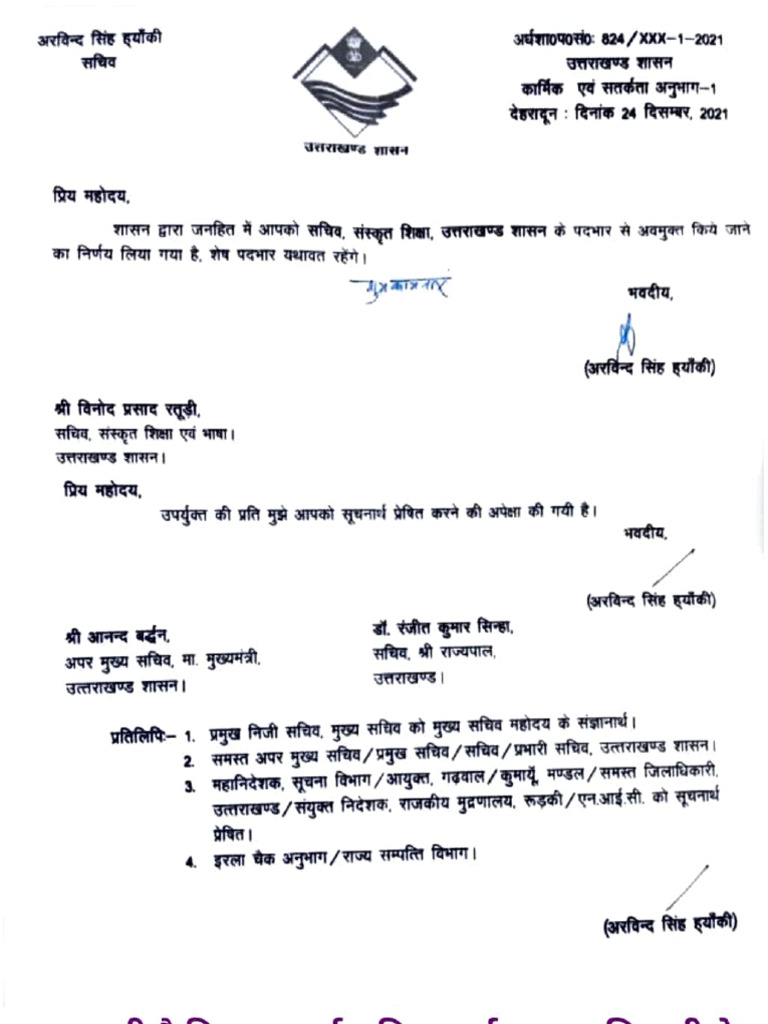 अरविन्द सिंह ह्याँकी
सचिव
उत्तराखण्ड शासन
अर्धशा०प०सं०: 824/XXX-1-2021
उत्तराखण्ड शासन
कार्मिक एवं सतर्कता अनुभाग-1
देहरादून : दिनांक 24 दिसम्बर, 2021
प्रिय महोदय,
शासन द्वारा जनहित में आपको सचिव, संस्कृत शिक्षा, उत्तराखण्ड शासन के पदभार से अवमुक्त किये जाने
का निर्णय लिया गया है, शेष पदभार यथावत रहेंगे।
भवदीय,
(अरविन्द सिंह ह्याँकी)
श्री विनोद प्रसाद रतूड़ी,
सचिव, संस्कृत शिक्षा एवं भाषा।
उत्तराखण्ड शासन।
प्रिय महोदय,
उपर्युक्त की प्रति मुझे आपको सूचनार्थ प्रेषित करने की अपेक्षा की गयी है।
भवदीय,
(अरविन्द सिंह ह्याँकी)
श्री आनन्द बर्द्धन,
अपर मुख्य सचिव, मा. मुख्यमंत्री,
उत्तराखण्ड शासन।
डॉ. रंजीत कुमार सिन्हा,
सचिव, श्री राज्यपाल,
उत्तराखण्ड।
प्रतिलिपिः- 1. प्रमुख निजी सचिव, मुख्य सचिव को मुख्य सचिव महोदय के संज्ञानार्थ।
2. समस्त अपर मुख्य सचिव/प्रमुख सचिव/सचिव/प्रभारी सचिव, उत्तराखण्ड शासन।
3. महानिदेशक, सूचना विभाग/आयुक्त, गढ़वाल/कुमायूँ, मण्डल/समस्त जिलाधिकारी,
उत्तराखण्ड/संयुक्त निदेशक, राजकीय मुद्रणालय, रूड़की/एन.आई.सी. को सूचनार्थ
प्रेषित।
4. इरला चैक अनुभाग/राज्य सम्पत्ति विभाग।
(अरविन्द सिंह ह्याँकी)